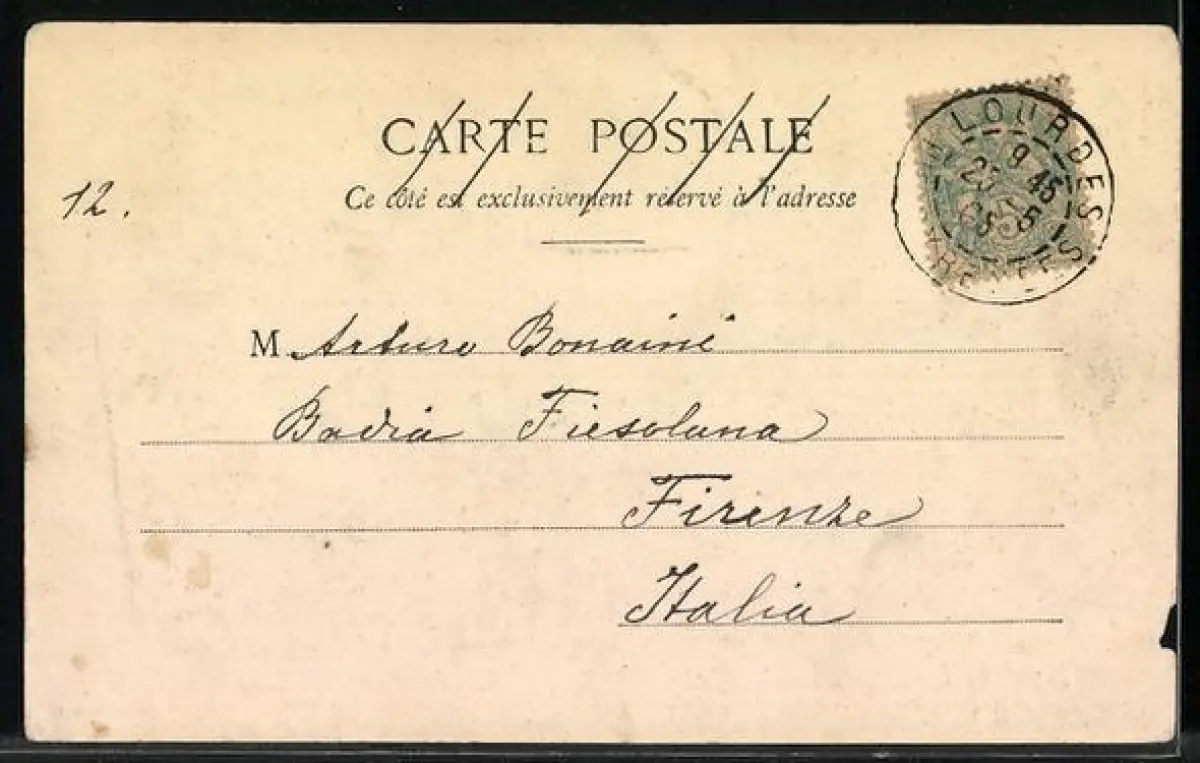 CARTE POSTALE
Ce côté est exclusivement réservé à l'adresse
12.
LOURDES
9 45
M Arturo Bonaini
Badia Fiesolana
Firenze
Italia